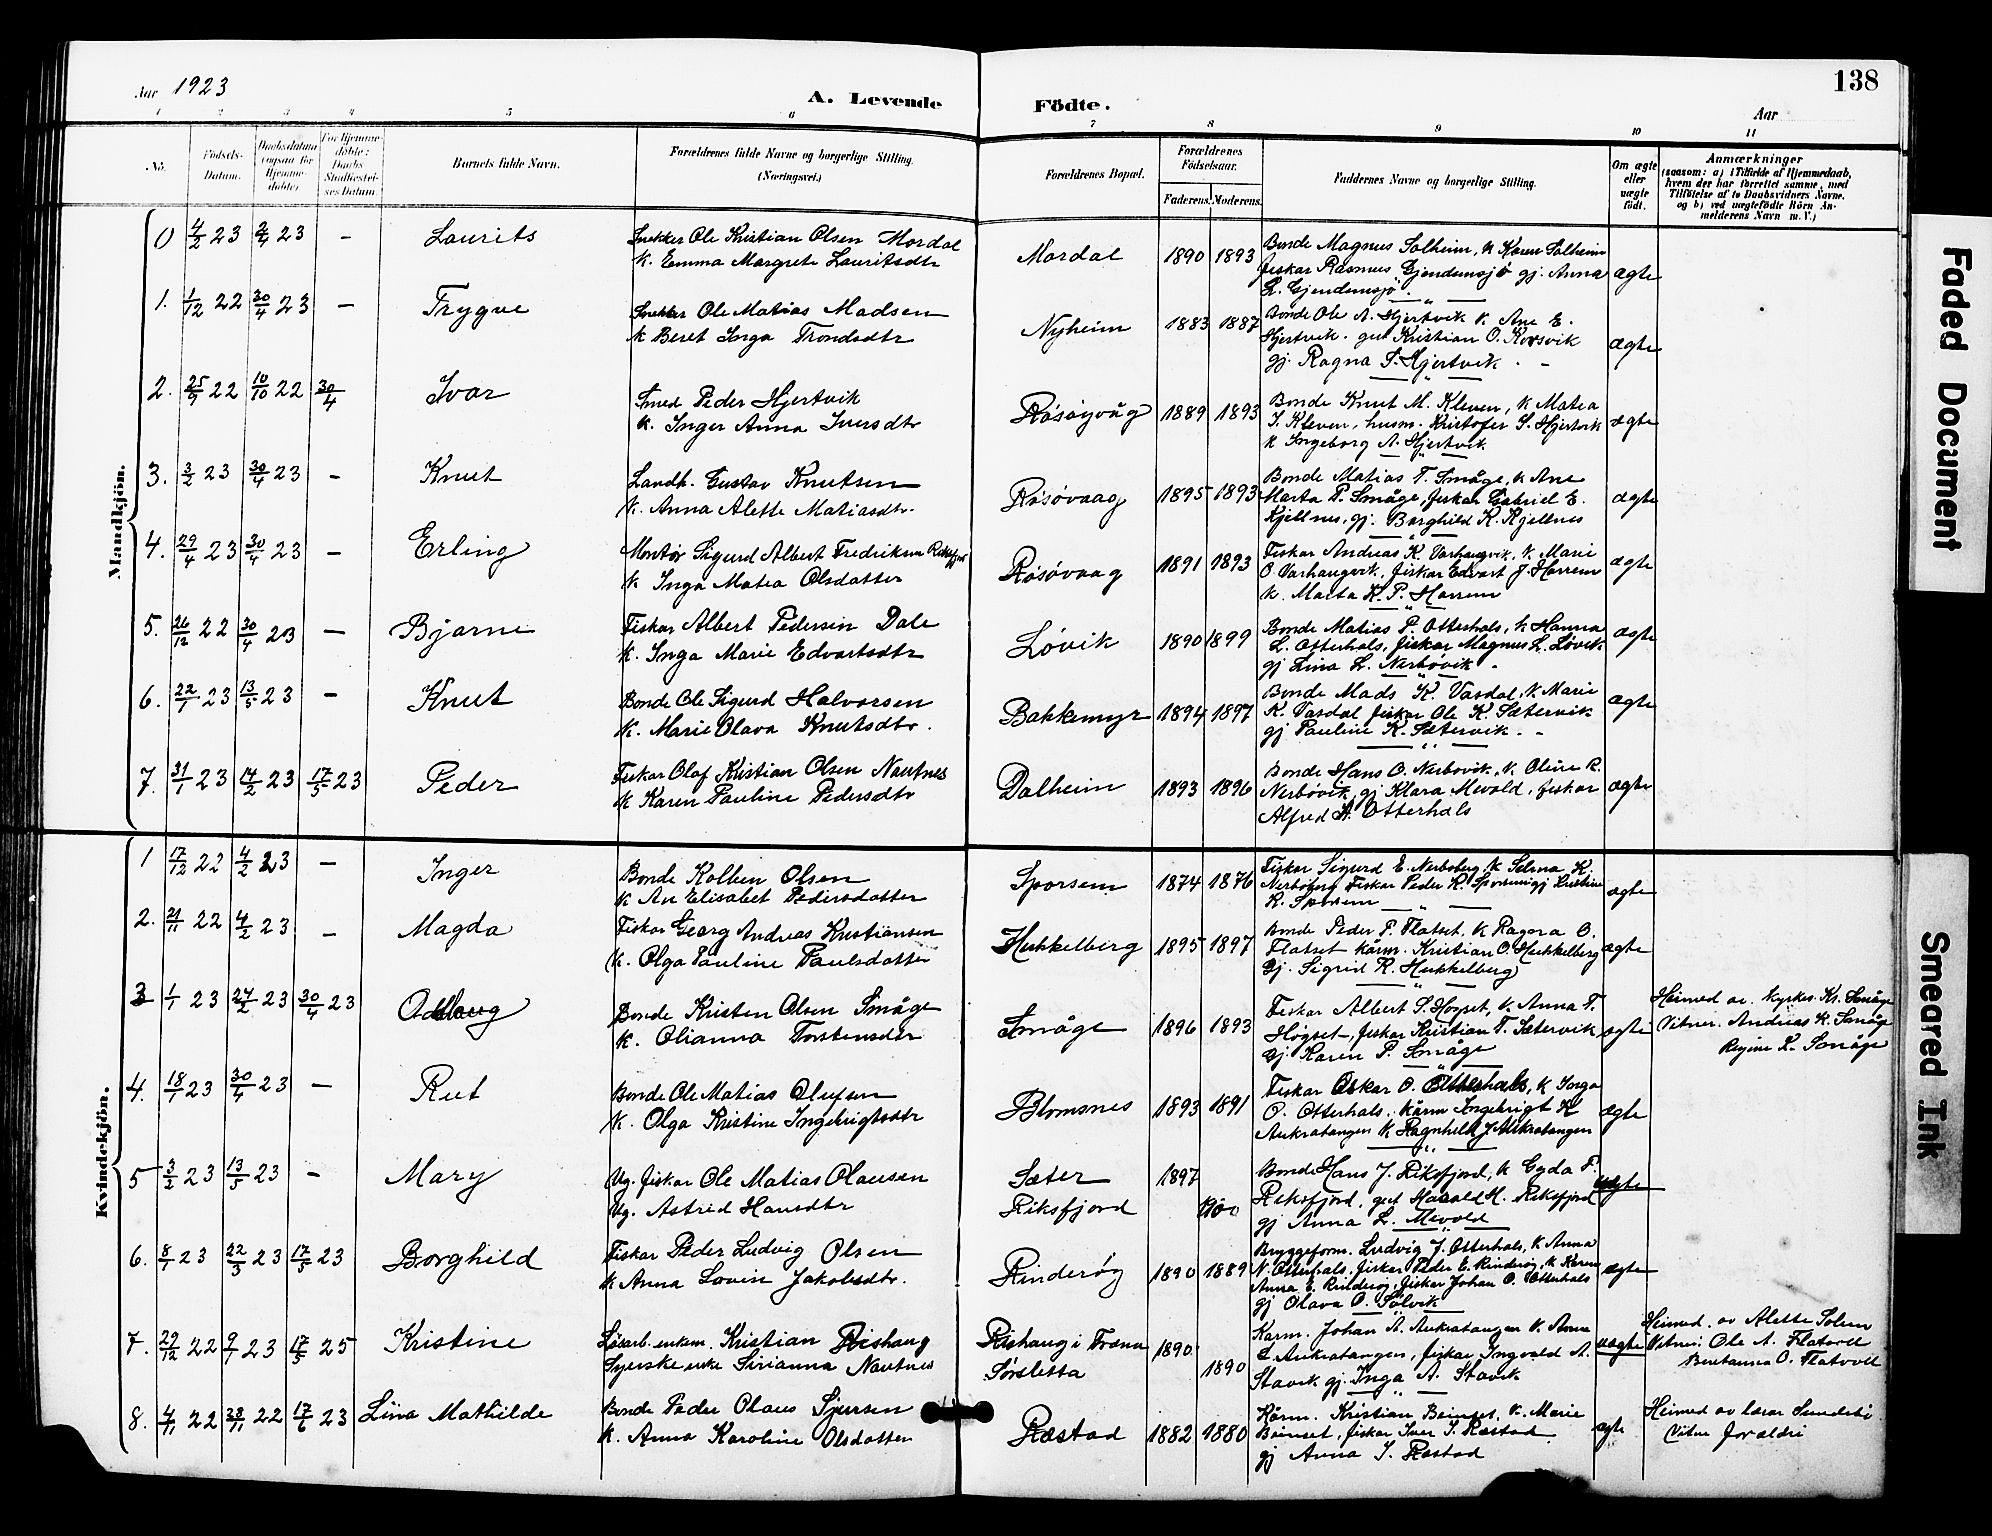 Aar 1923
A. Levende Födte.
138
Aar
1 2 3 4 5 6 7 8 9 10 11
No.
Födsels-Datum.
Daabsdatum (ogsaa for Hjemme-döbte).
For Hjemme-döbte: Daabs Stadfæstel-ses Datum
Barnets fulde Navn.
Forældrenes fulde Navne og borgerlige Stilling. (Næringsvei.)
Forældrenes Bopæl.
Forældrenes Födselsaar.
Faderens. Moderens.
Faddernes Navne og borgerlige Stilling.
Om ægte eller uægte födt.
Anmærkninger
(saasom: a) i Tilfælde af Hjemmedaab,
hvem der har forrettet samme, med
Tilföielse af to Daabsvidners Navne.
og b) ved uægtefödte Börn An-
melderens Navn m. V.)
Mandkjön.
0 4/2 23 2/4 23 - Laurits
Snekker Ole Kristian Olsen Mordal
k. Emma Margrete Lauritsdtr
Mordal 1890 1893
Bonde Magnus Solheim, k Karen Solheim
fiskar Rasmus Gjendemsjø gj. Anna
L. Gjendemsjø
ægte
1. 1/12 22 30/4 23 - Trygve
Snekker Ole Matias Madsen
k Beret Inga Trondsdtr
Nyheim 1883 1887
Bonde Ole A. Hjertvik k. Ane E.
Hjertvik. gut Kristian O. Korsvik
gj. Ragna P. Hjertvik. -
ægte
2. 25/9 22 10/10 22 30/4 Ivar
Smed Peder Hjertvik
k. Inger Anna Iversdtr
Røsøyvåg 1889 1893
Bonde Knut M. Kleven, k Matea
I. Kleven, husm. Kristofer S. Hjertvik
k Ingeborg A. Hjertvik
ægte
3. 3/2 23 30/4 23 - Knut
Landh. Gustav Knutsen
k. Anna Alette Matiasdtr.
Røsøvaag 1895 1893
Bonde Matias T. Småge, k Ane
Marta P. Småge, fiskar Gabriel E.
Kjellnes, gj. Borghild K. Kjellnes
ægte
4. 29/4 23 30/4 23 - Erling
Montør Sigurd Albert Fredriksen
k Inga Matea Olsdatter
Røsøvaag 1891 1893
Fiskar Andreas K. Varhaugvik, k. Marie
O Varhaugvik, fiskar Edvart J. Harrem
k. Marta K. P. Harrem
ægte
5. 26/12 22 30/4 23 - Bjarne
Fiskar Albert Pedersen Dale
k. Inga Marie Edvartsdtr
Løvik 1890 1899
Bonde Matias P. Otterhals, k Hanna
L. Otterhals, fiskar Magnus L. Løvik
gj Lina L. Nerbøvik.
ægte
6. 22/1 23 13/5 23 - Knut
Bonde Ole Sigurd Halvorsen
k. Marie Olava Knutsdtr.
Bakkemyr 1894 1897
Bonde Mads K. Vasdal, k Marie
K. Vasdal fiskar Ole K. Sætervik
gj Pauline K. Sætervik. -
ægte
7. 31/1 23 14/2 23 17/5 23 Peder
Fiskar Olaf Kristian Olsen Nautnes
k Karen Pauline Pedersdtr
Dalheim 1893 1896
Bonde Hans O. Nerbøvik, k Oline R.
Nerbøvik, gj Klara Mevold, fiskar
Alfred A. Otterhals
ægte
Kvindekjön.
1 17/12 22 4/2 23 - Inger
Bonde Kolben Olsen
k An Elisabet Pedersdatter
Sporsem 1874 1876
Fiskar Sigurd E. Nerboberg, k Selma K.
Nerboberg Fiskar Peder K. Sporsem gj Kristine
R. Sporsem
ægte
2. 21/11 22 4/2 23 - Magda
Fiskar Georg Andreas Kristiansen
k. Olga Pauline Paulsdatter
Hukkelberg 1895 1897
Bonde Peder P. Flatset, k Ragna O.
Flatset kårm. Kristian O. Hukkelberg
Gj. Sigrid R. Hukkelberg
ægte
3 1/1 23 24/2 23 30/4 23 Oddlaug
Bonde Kristen Olsen Småge
k. Olianna Torstensdtr
Småge 1896 1893
Fiskar Albert S. Hogset, k. Anna T.
Hogset, fiskar Kristian T. Sætervik
Gj Karen P. Småge
ægte
Heimed av. kyrkes. Kr. Småge
Vitner. Andreas K. Småge
Regine K. Småge
4. 18/1 23 30/4 23 - Rut
Bonde Ole Matias Olufsen
k. Olga Kristine Ingebrigtsdtr
Blomsnes 1893 1891
Fiskar Oskar O. Otterhals, k Inga
O. Otterhals. kårm Ingebrigt K
Aukratangen k Ragnhild J Aukratangen
ægte
5 3/2 23 13/5 23 - Mary
Ug. fiskar Ole Matias Olausen
Ug. Astrid Hansdtr
Sæter
Riksfjord
1897
1900
Bonde Hans J. Riksfjord, k Gyda P.
Riksfjord, gut Harald H. Riksfjord
gj Anna L. Mevold
uægte
6. 8/1 23 22/3 23 17/5 23 Borghild
Fiskar Peder Ludvig Olsen
k Anna Lovise Jakobsdtr.
Rinderøy 1890 1889
Bryggeform. Ludvig J. Otterhals, k Anna
N. Otterhals, fiskar Peder E. Rinderøy, k Karen
Anna E. Rinderøy, fiskar Johan O. Otterhals
gj Olava O. Sølvik
ægte
7. 29/12 22 9/1 23 17/5 25 Kristine
Løsarb. enkem. Kristian Rishaug
Syerske enke Sirianna Nautnes
Rishaug i Fræna
Sørsletta
1890
1890
Karm. Johan A. Aukratangen k. Anna
E Aukratangen, fiskar Ingvald A.
Stavik gj. Inga A. Stavik
uægte
Heimed. av Alette Solem
Vitner: Ole A. Flatvoll
Bentanna O. Flatvoll
8. 4/11 22 28/11 22 17/6 23 Lina Mathilde
Bonde Peder Olaus Sjursen
k. Anna Karoline Olsdatter
Ræstad 1882 1880
Kårm. Kristian Beinset, k. Marie
Beinset, fiskar Iver I. Ræstad
gj Anna I. Ræstad
ægte
Heimed av lærar Sundsbø
Vitne foreldre
Faded Document
Smeared Ink